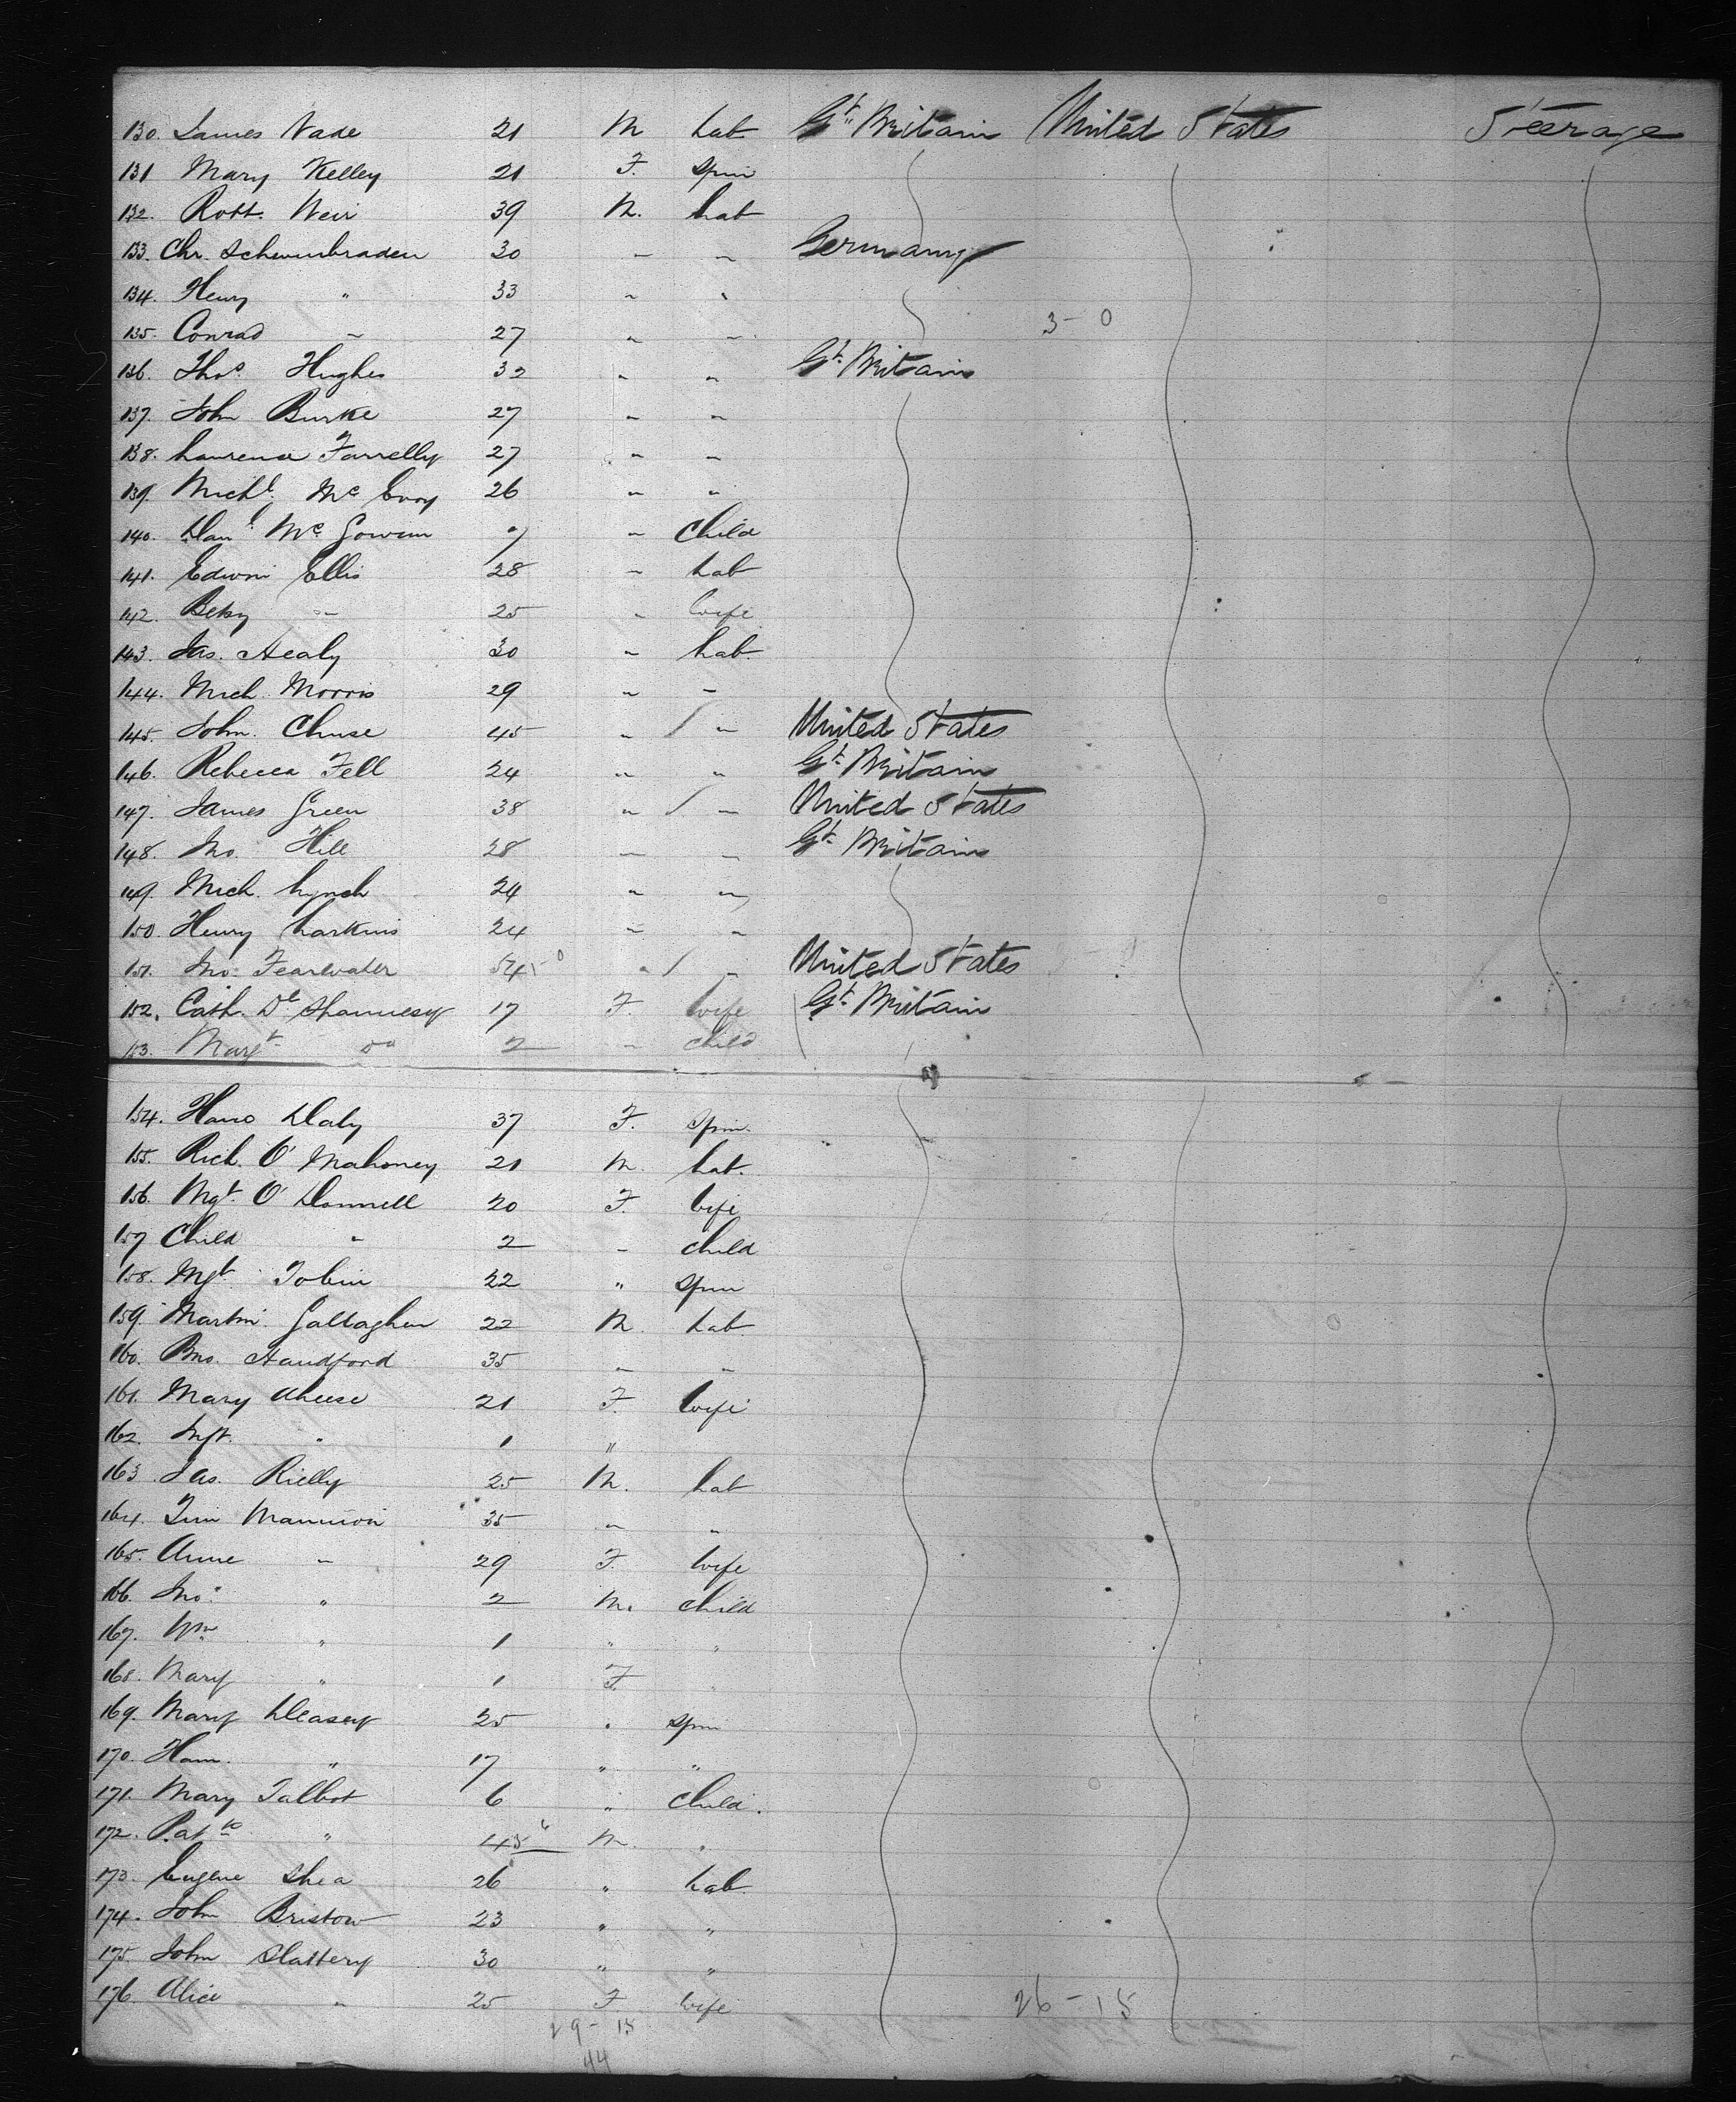 130. James Wade 21 M Lab Gt Britain United States Steerage
131 Mary Kelley 21 F. Spin
132. Robt. Weir 39 M. Lab
133. Chr. 30 " " Germany
134. Henry " 33 " "
135. Conrad " 27 " " 3-0
136. Thos. Hughes 32 " " Gt. Britain
137. John Burke 27 " "
138. Laurence Farrelly 27 " "
139. Michl. Mc Evoy 26 " "
140. Danl. Mc Gowan 7 " Child
141. Edwin Ellis 28 " Lab
142. Betsy " 25 " Wife
143. Jas. Healy 30 " Lab.
144. Mich. Morris 29 " "
145. John. 45 " / " United States
146. Rebecca Fell 24 " " Gt. Britain
147. James Green 38 " / " United States
148. Jno. Hill 28 " " Gt. Britain
149. Mich. Lynch 24 " "
150. Henry Larkins 24 " "
151. Jno. " / " United States
152. Cath. 17 F. Wife Gt. Britain
153. Margt Do 2 " Child
154. Daly 37 F. Spin.
155. Rich. O' Mahoney 21 M. Lab.
156. Mgt. O' Donnell 20 F. Wife
157 Child " 2 " child
158. Mgt. Tobin 22 " Spin
159. Martin Gallagher 22 M. Lab.
160. Handford 35 " "
161. Mary 21 F. Wife
162. " 1 "
163. Jas. Rielly 25 M. Lab
164. Tim Mannion 35 " "
165. Anne " 29 F. Wife
166. Jno. " 2 M. Child
167. Wm " 1 " "
168. Mary " 1 F. "
169. Mary Deasey 25 " Spin
170. Han. " 17 " "
171. Mary Talbot 6 " Child.
172. Patk " M. "
173. Eugene Shea 26 " Lab.
174. John Bristow 23 " "
175. John Slattery 30 " "
176. Alice " 25 F. Wife 26-15
29-15
44